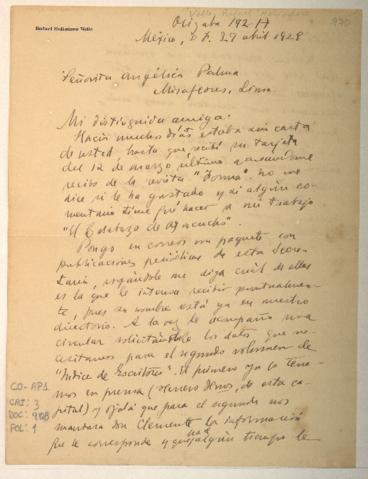 Rafael Heliodoro Valle
Orizaba 192-A
México, D.F. 29 abril 1929
970
Señorita Angélica Palma
Miraflores, Lima.
Mi distinguida amiga:
Hacía muchos días estaba sin carta
de usted, hasta que recibí su tarjeta
del 12 de marzo último acusándome
recibo de la revista "Forma". No me
dice si le ha gustado y si algún co-
mentario tiene qué hacer a mi trabajo
"El Calabazo de Ayacucho".
Pongo en correo un paquete con
publicaciones periódicas de esta Secre-
taría, rogándole me diga cuál de ellas
es la que le interesa recibir puntualmen-
te, pues su nombre está ya en nuestro
directorio. A la vez le acompaño una
circular solicitándole los datos que ne-
cesitamos para el segundo volumen de
"Indice de Escritores". El primero ya lo tene-
mos en prensa (Herrero Hnos, de esta ca-
pital) y ojalá que para el segundo nos
mandara Don Clemente la información
que le corresponde y que algún tiempo le
CO-AP1
CAJ: 3
DOC: 908
FOL: 1